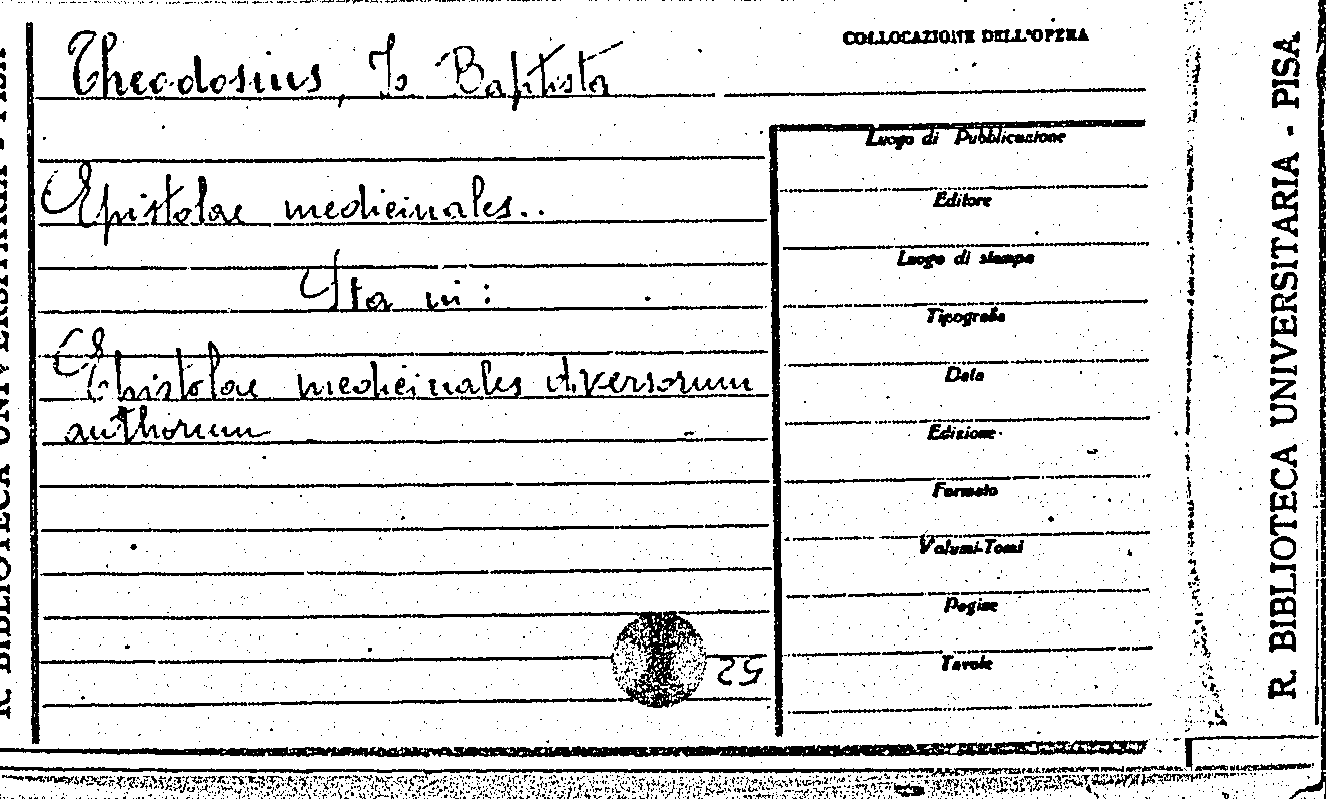 COLLOCAZIONE DELL'OPERA
Theodosius, Io Baptista
Epistolae medicinales..
Sta in:
Epistolae medicinales diversorum
authorum
Luogo di Pubblicazione
Editore
Luogo di stampa
Tipografia
Data
Edizione
Formato
Volumi-Tomi
Pagine
Tavole
52
R. BIBLIOTECA UNIVERSITARIA - PISA
R. BIBLIOTECA UNIVERSITARIA - PISA